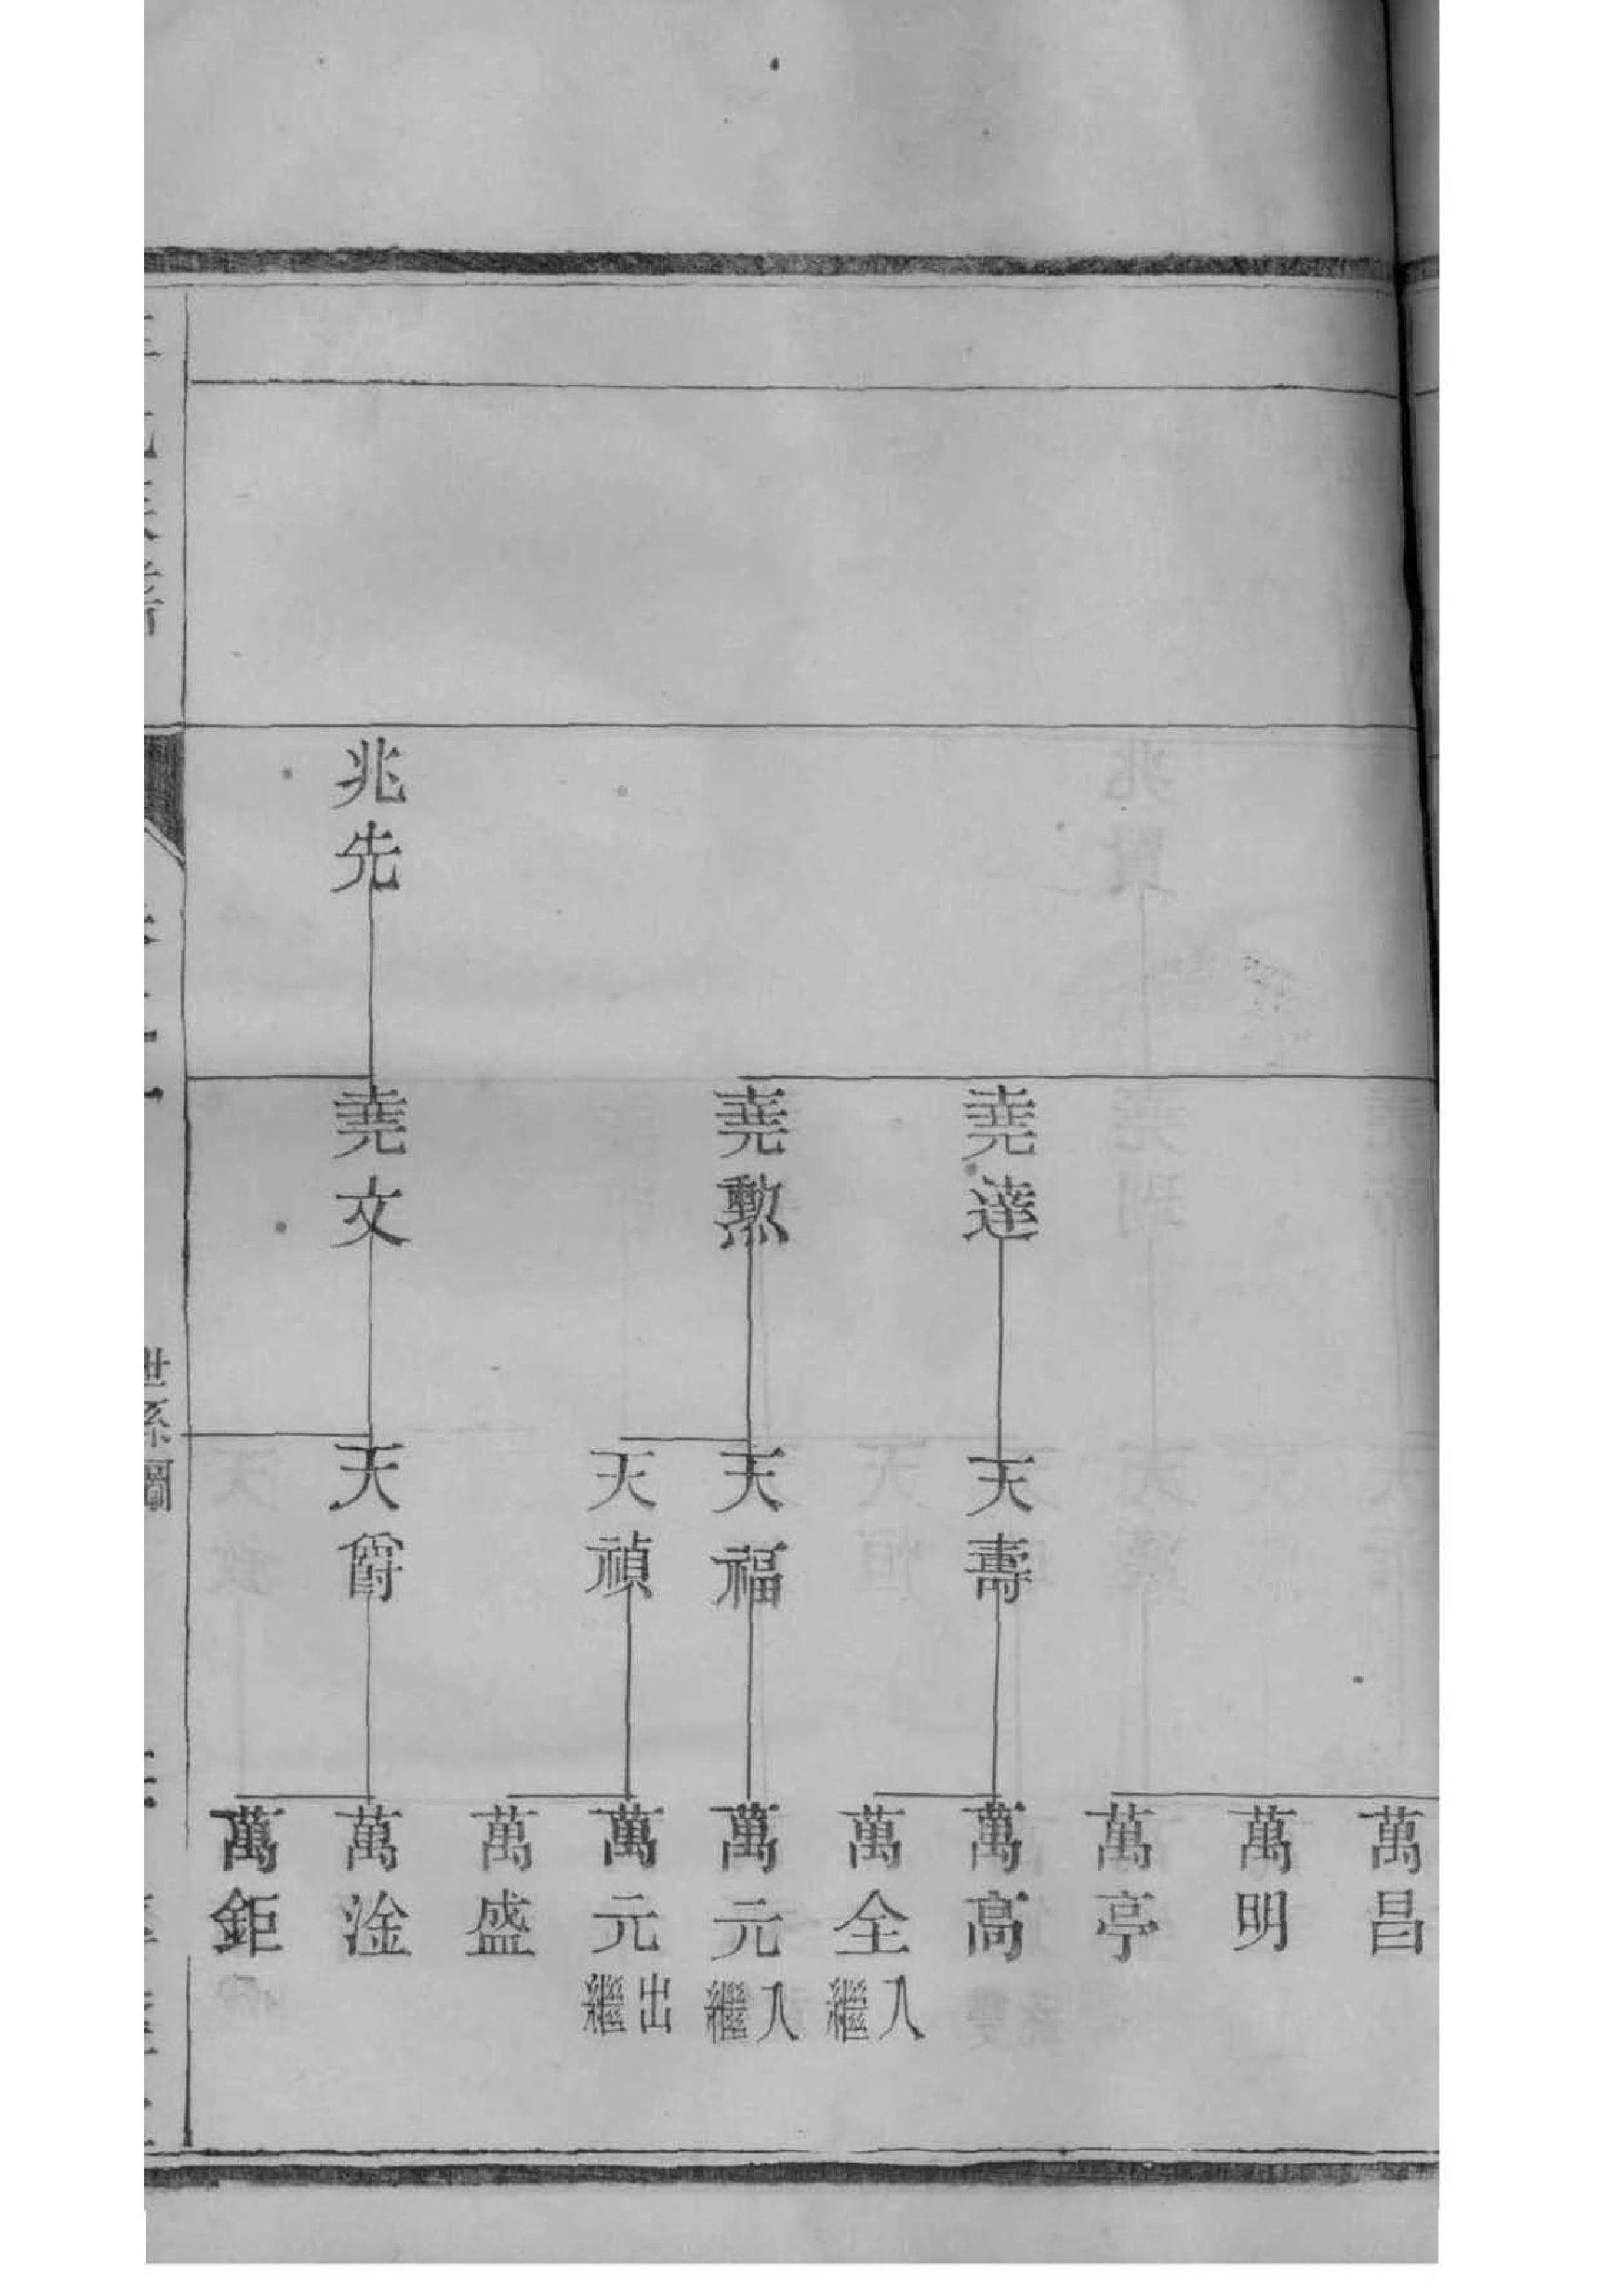 兆先
堯達
堯勲
堯文
天壽
天福
天禎
天爵
萬昌
萬明
萬亭
萬高
萬全 入繼
萬元 入繼
萬元 出繼
萬盛
萬淦
萬鉅
世系圖